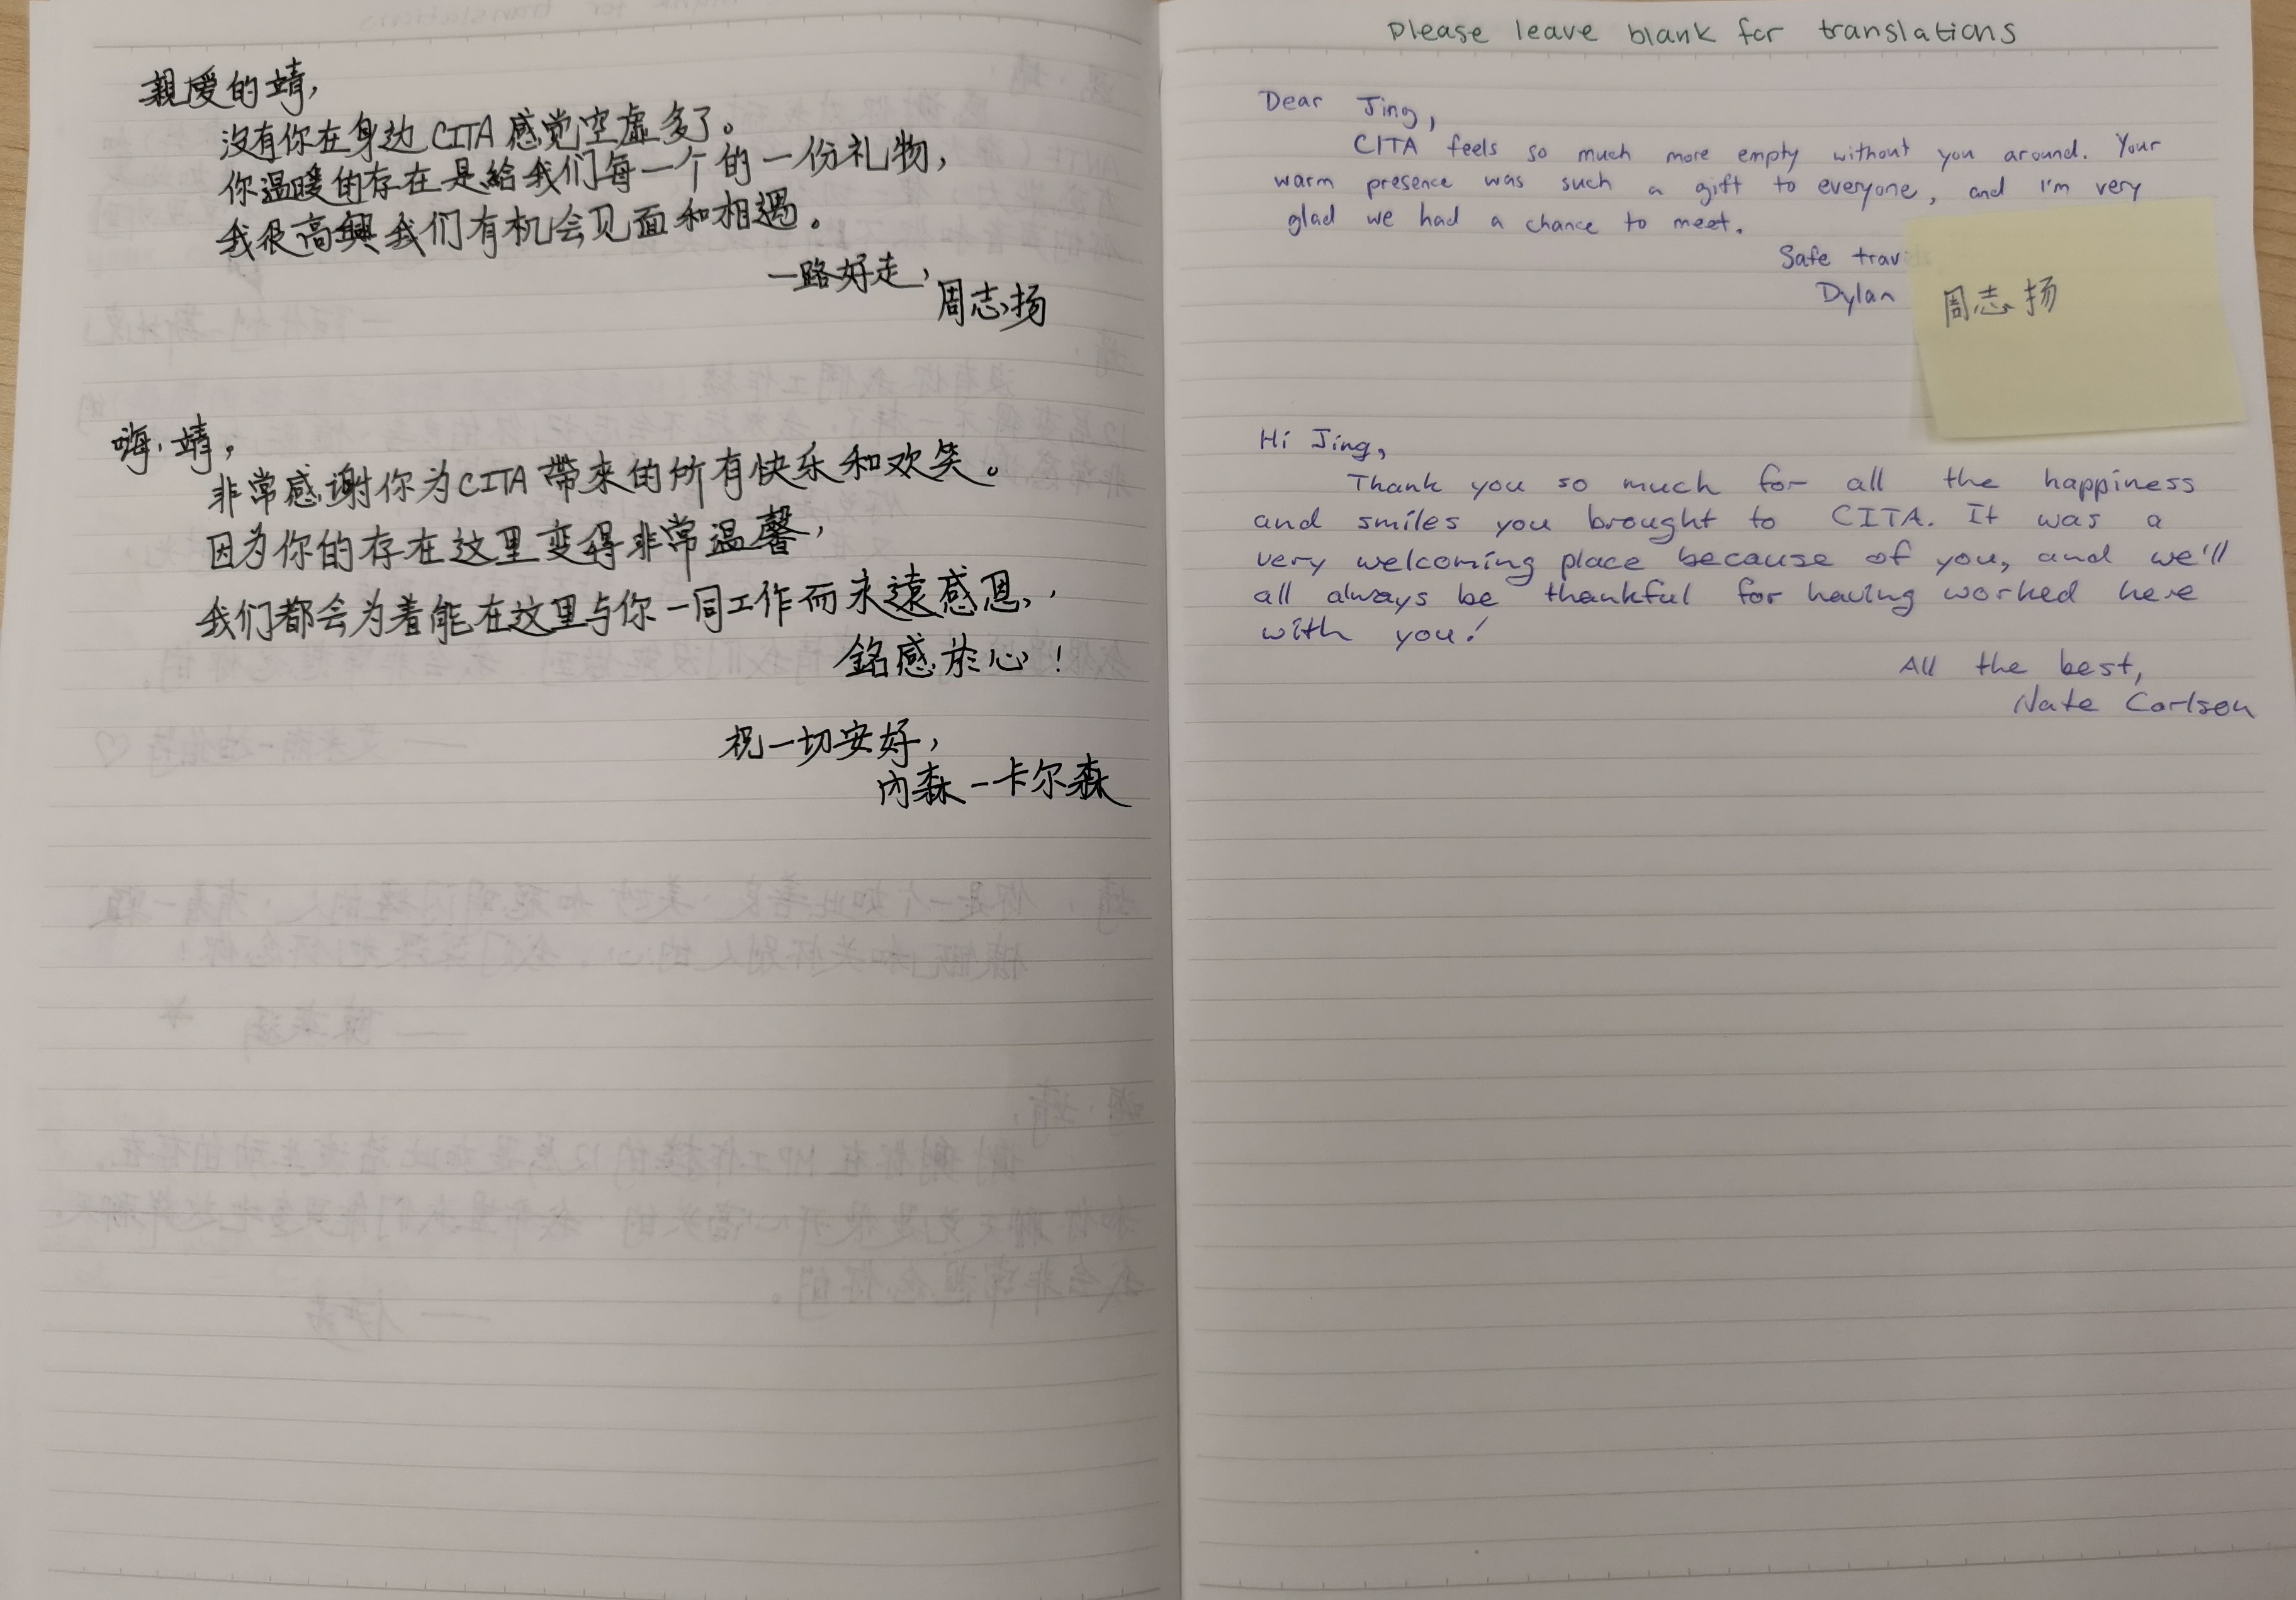 親爱的靖,
沒有你在身边 CITA 感觉空虚多了。
你温暖的存在是給我们每一个的一份礼物,
我很高興我们有机会见面和相遇。
一路好走,
周志扬
嗨,靖,
非常感谢你为CITA 帶来的所有快乐和欢笑。
因为你的存在这里变得非常温馨,
我们都会为着能在这里与你一同工作而永遠感恩,
銘感於心!
祝一切安好,
內森-卡尔森
please leave blank for translations
Dear Jing,
CITA feels so much more empty without you around. Your
warm presence was such a gift to everyone, and I'm very
glad we had a chance to meet.
Safe trav
Dylan
周志扬
Hi Jing,
Thank you so much for all the happiness
and smiles you brought to CITA. It was a
very welcoming place because of you, and we'll
all always be thankful for having worked here
with you!
All the best,
Nate Carlson